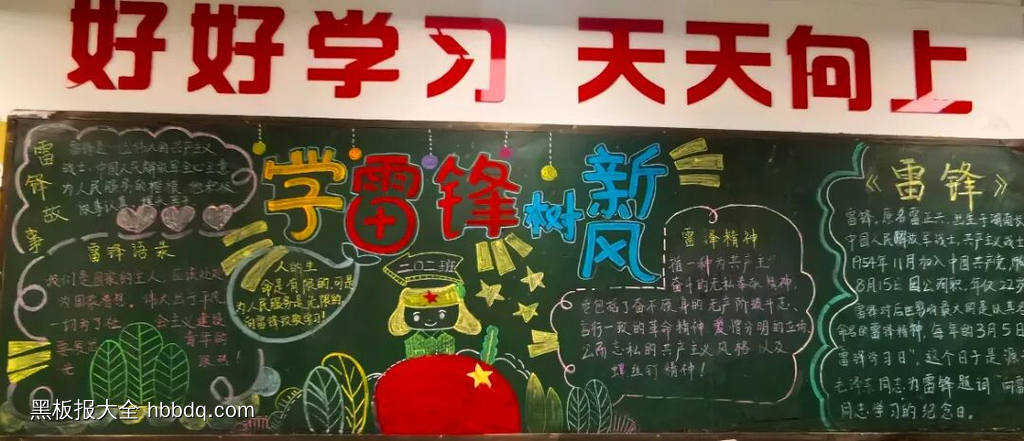 好好学习 天天向上
雷锋故事
雷锋是一位伟大的共产主义
战士 中国人民解放军
为人民服务的楷模
雷锋语录
我们是国家的主人,应该处处
为国家着想
学雷锋树新风
人的生
命是有限的,可是
为人民服务是无限的
向雷锋致敬学习!
二〇二班
雷泽精神
指一种为共产主
奋斗的无私奉献精神,
它包括了奋不顾身的无产阶级斗志、
言行一致的革命精神 爱憎分明的立场
公而忘私的共产主义风格 以及
螺丝钉精神!
《雷锋》
雷锋,原名雷正兴,出生于湖南长
中国人民解放军战士,共产主义战士
1954年11月加入中国共产党,
8月15日因公殉职,年仅22岁
雷锋对后世影响最大的是以其名
命名的雷锋精神,每年的3月5日
雷锋学习日",这个日子是源
毛泽东同志为雷锋题词"向雷
同志学习的纪念日。
黑板报大全 hbbdq.com